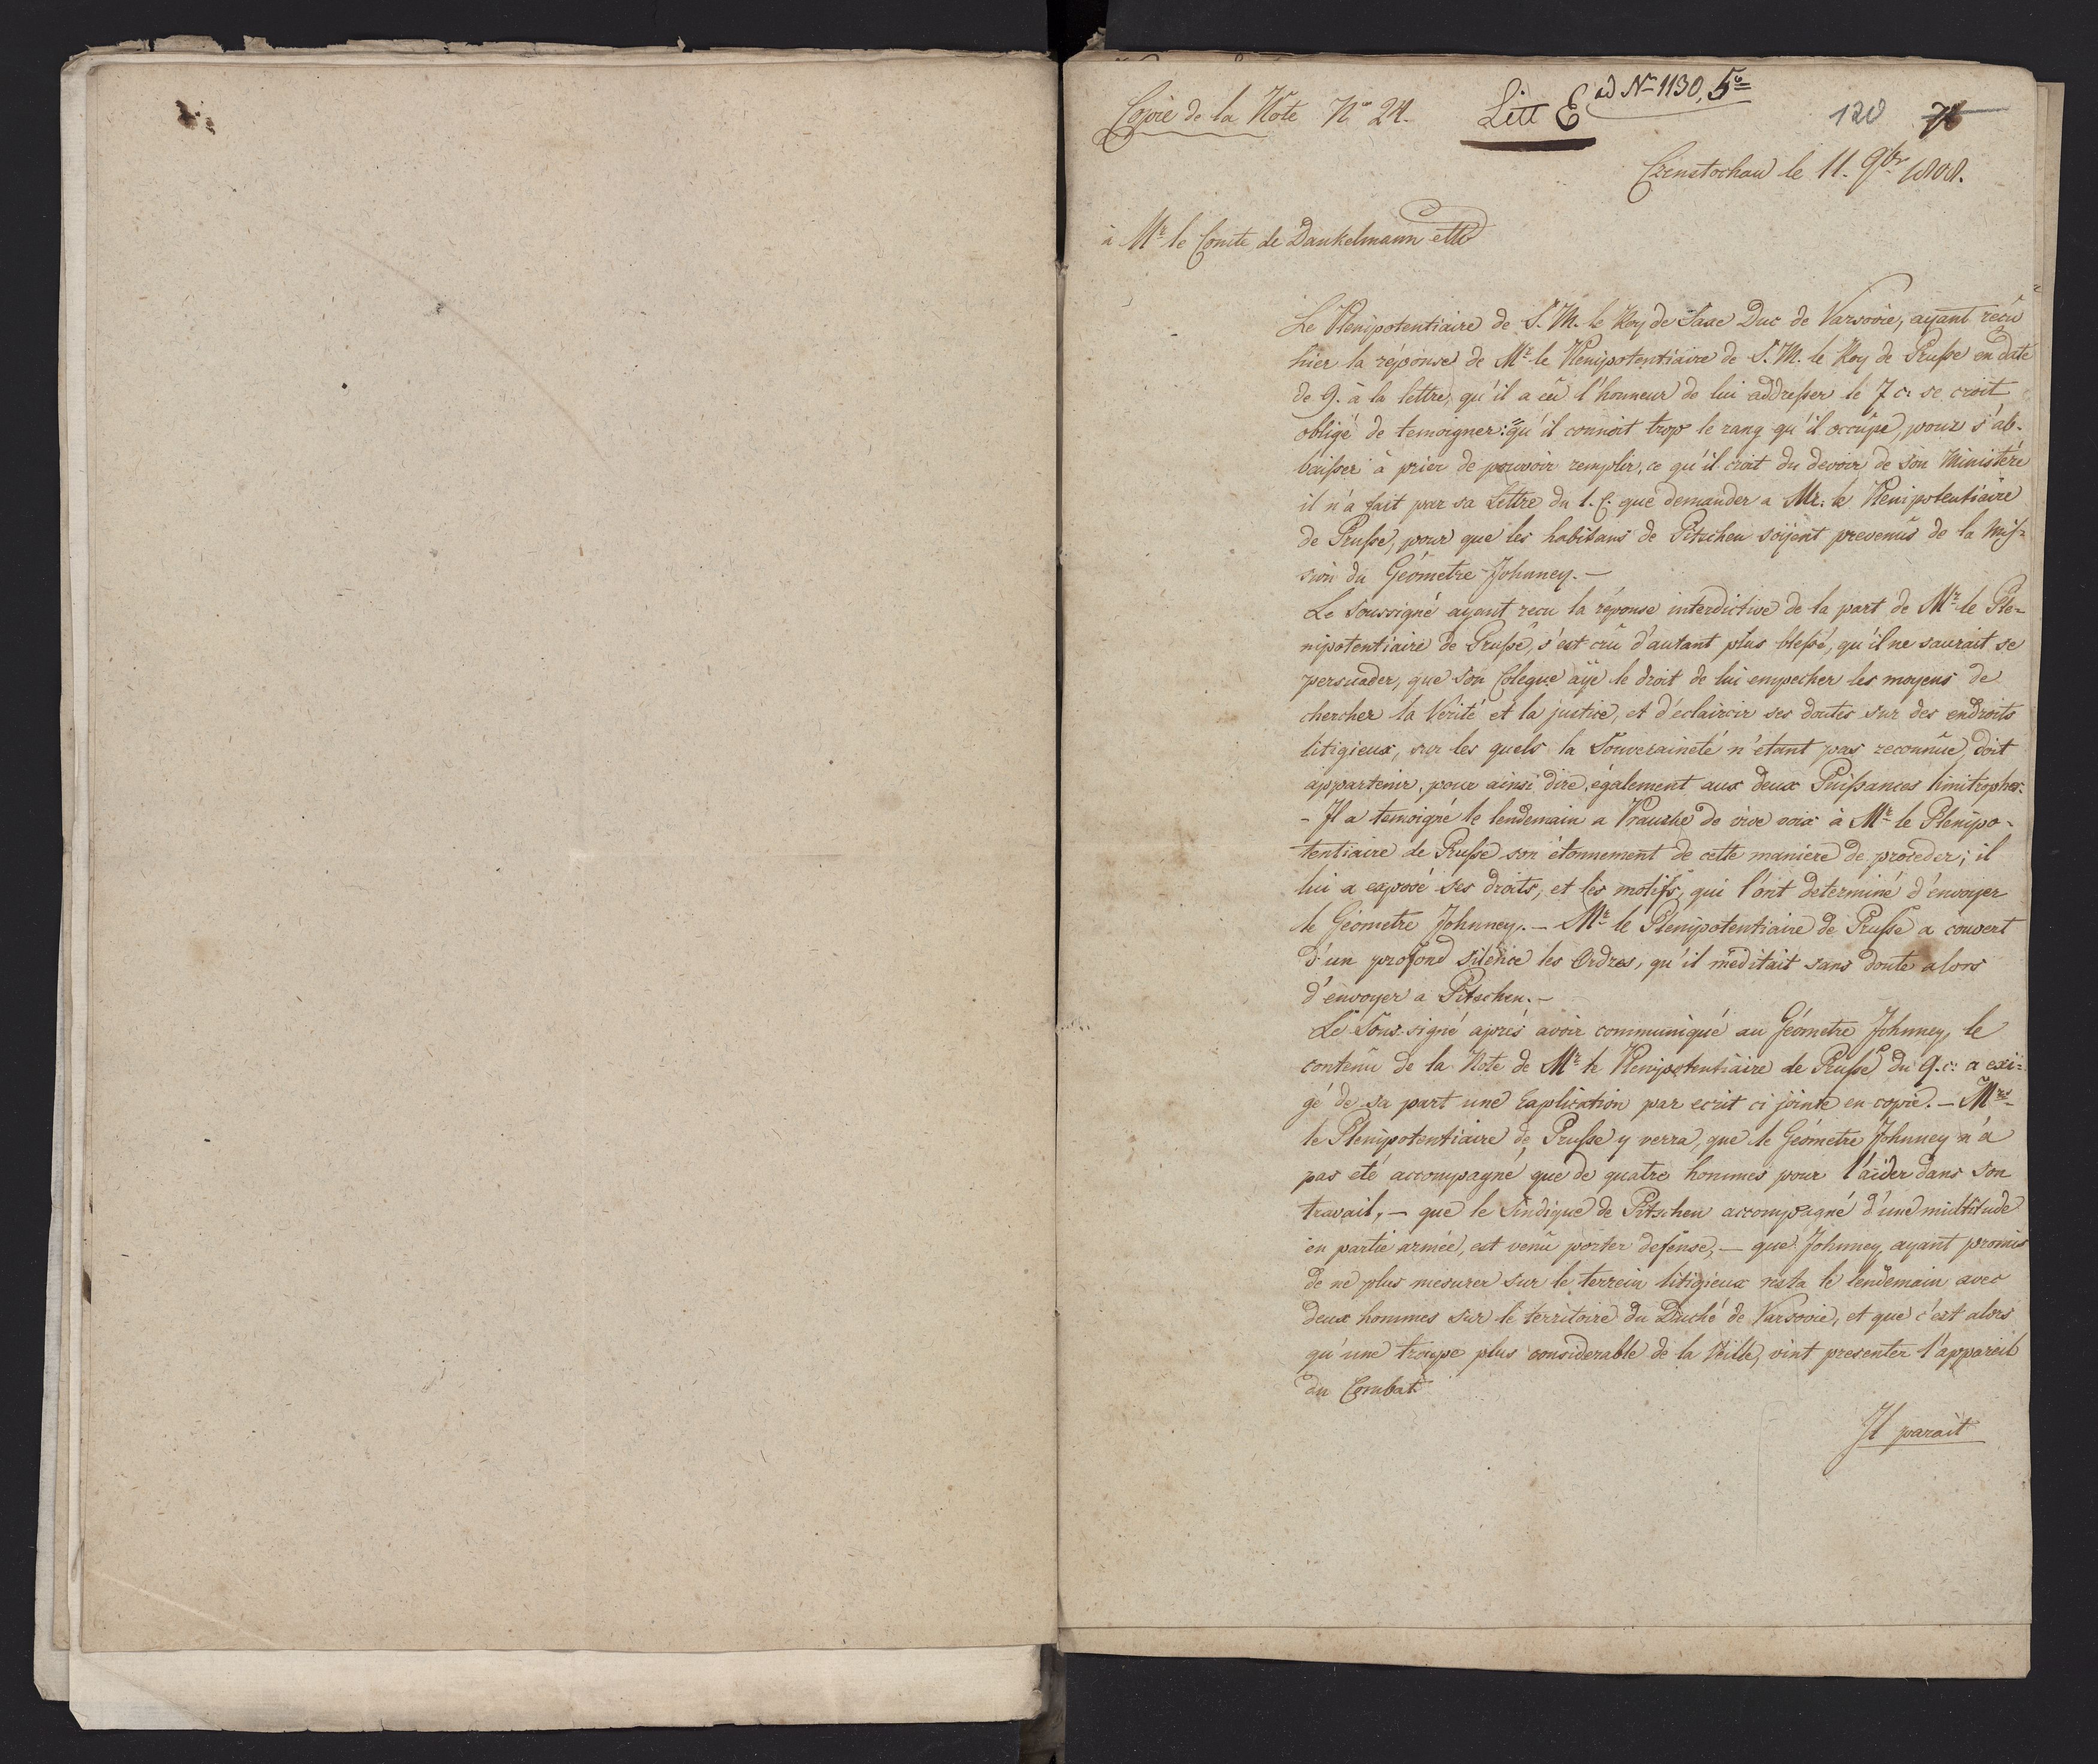 Copie de la Note N° 24.
Litt E
ad N 1130, 5°
120
Czenstochau le 11. 9br 1808.
à Mr le Comte de Dankelmann etc
Le Plenipotentiaire de S. M. le Roy de Saxe Duc de Varsovie, ayant reçu
hier la réponse de Mr le Plenipotentiaire de S. M. le Roy de Prusse en date
de 9. à la lettre, qu'il a eû l'honneur de lui addresser le 7 c: se croit
obligé de temoigner: qu'il connoit trop le rang qu'il occupe, pour s'ab-
baisser à prier de pouvoir remplir, ce qu'il croit du devoir de son Ministère
il n'a fait par sa Lettre du 1. C: que demander a Mr. le Plenipotentiaire
de Prusse, pour que les habitans de Pitschen soijent prevenûs de la Mis-
sion du Géometre Johnney. —
Le Soussigné ayant recu la réponse interdictive de la part de Mr le Ple-
nipotentiaire de Prusse, s'est crû d'autant plus blessé, qu'il ne saurait se
persuader, que son Colegue aÿe le droit de lui empecher les moyens de
chercher la Verité et la justice, et d'eclaircir ses doutes sur des endroits
litigieux, sur les quels la Souveraineté n'étant pas reconnûe, doit
appartenir, pour ainsi dire, également aux deux Puissances limitrophes.
- Il a temoigné le lendemain a Prauske de vive voix à Mr le Plenipo-
tentiaire de Prusse son étonnement de cette maniere de proceder; il
lui a exposé ses droits, et les motifs, qui l'ont determiné d'envoyer
le Géometre Johnney. — Mr le Plenipotentiaire de Prusse a couvert
d'un profond silence les Ordres, qu'il méditait sans doute alors
d'envoyer a Pitschen. —
Le Sous-signé aprés avoir communiqué au Géometre Johnney, le
contenu de la Note de Mr le Plenipotentiaire de Prusse du 9. c: a exi-
gé de sa part une Explication par ecrit ci jointe en copie. — Mr
le Plenipotentiaire de Prusse y verra, que le Géometre Johnney n'a
pas eté accompagné que de quatre hommes pour l'aider dans son
travail, — que le Sindique de Pitschen accompagné d'une multitude
en partie armée, est venû porter defense, — que Johnney, ayant promis
de ne plus mesurer sur le terrein litigieux resta le lendemain avec
deux hommes sur le territoire du Duché de Varsovie, et que c'est alors
qu'une troupe plus considerable de la Veille, vint presenter l'appareil
du Combat
Il parait